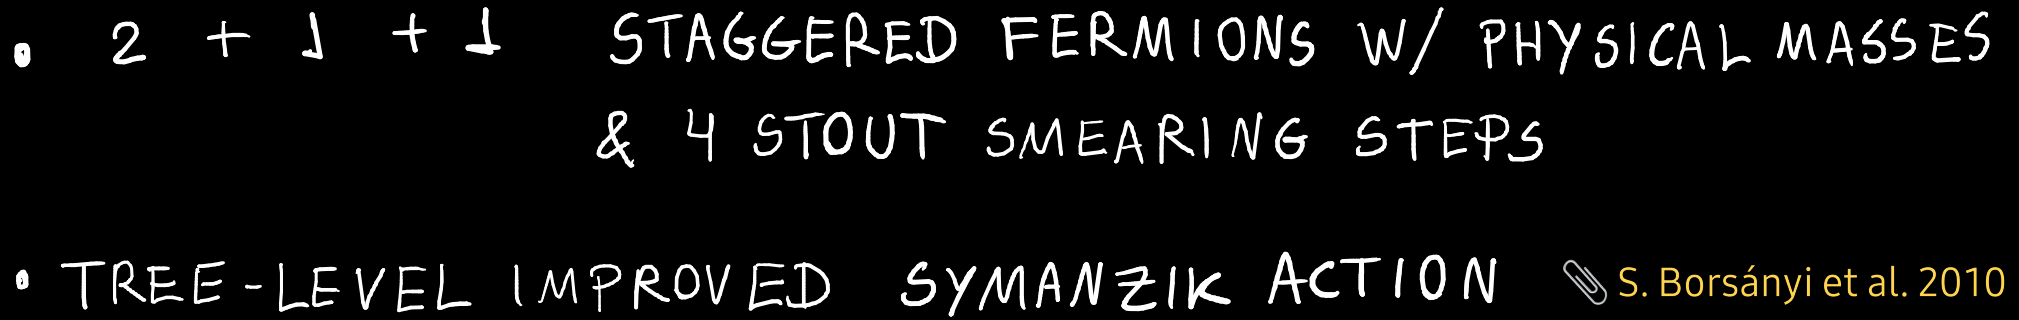 • 2 + 1 + 1 STAGGERED FERMIONS W/ PHYSICAL MASSES
& 4 STOUT SMEARING STEPS
• TREE-LEVEL IMPROVED SYMANZIK ACTION S. Borsányi et al. 2010